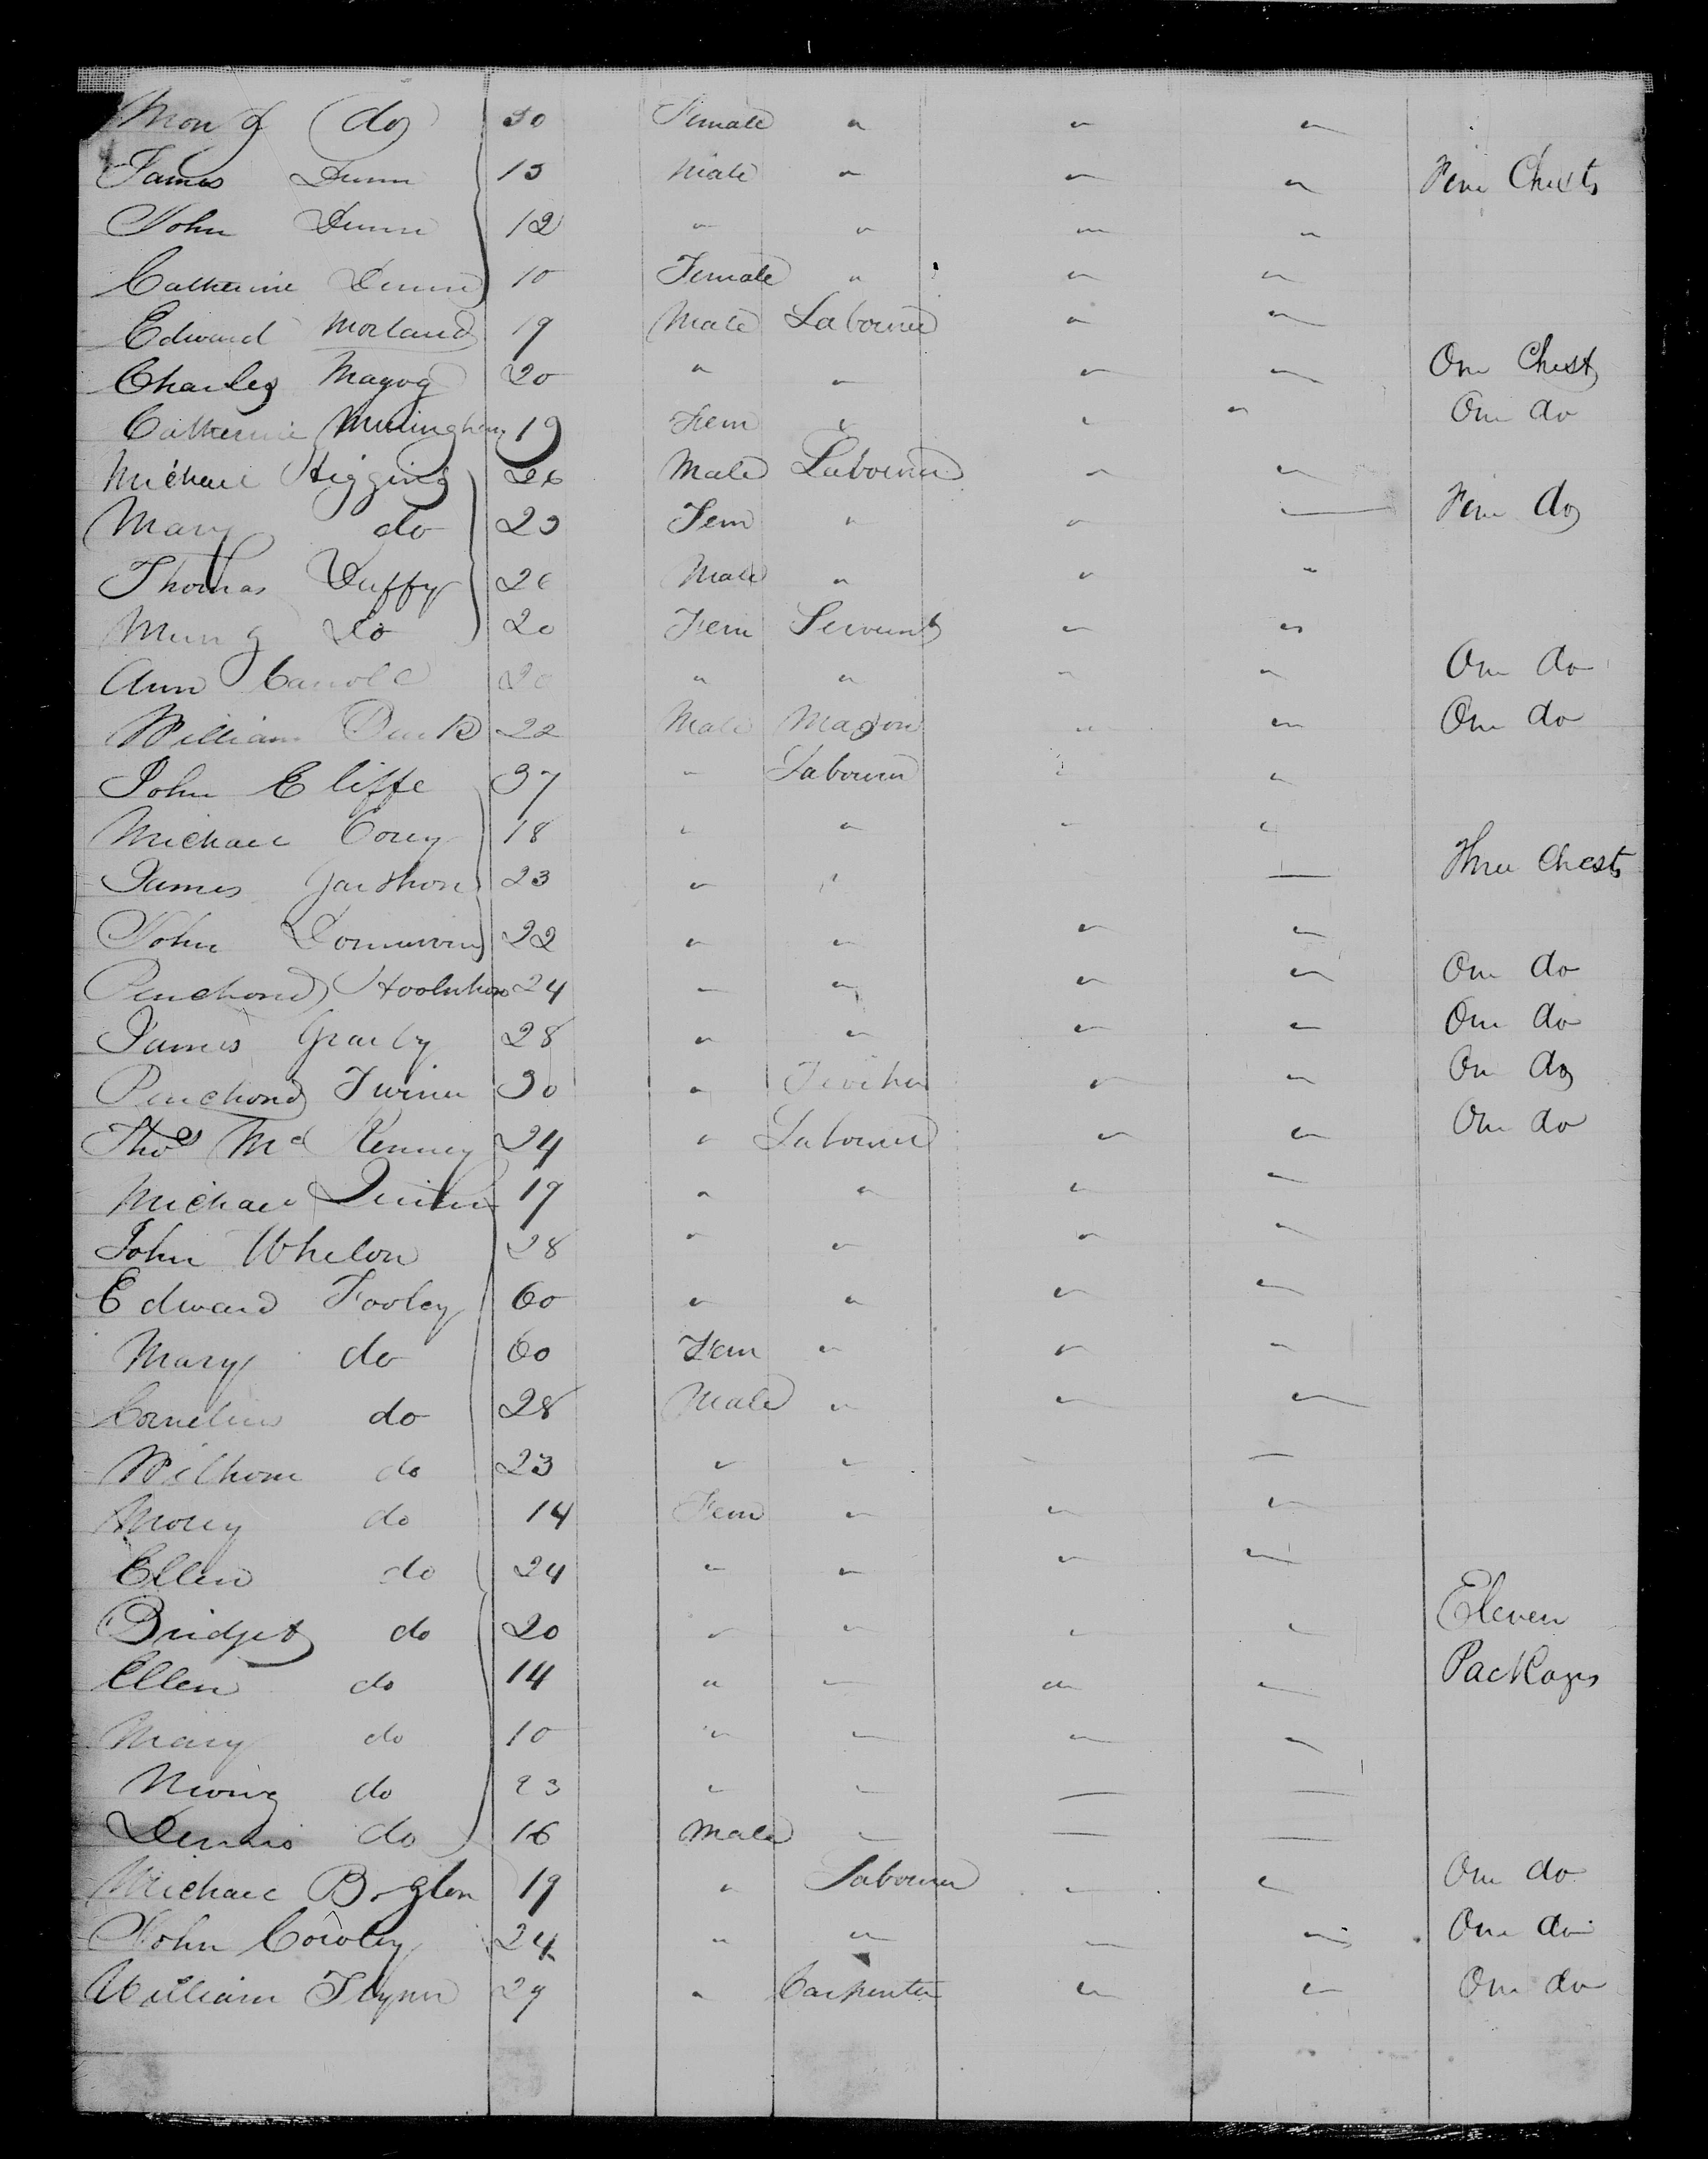 Mary (do) 30 Female " " "
James Dunn 15 Male " " " Five Chests
John Dunn 12 " " " "
Catherine Dunn 10 Female " " "
Edward Morland 19 Male Labourer " "
Charles Magog 20 " " " " One Chest
Catherine 19 Fem " " " One do
Michael Higgins 26 Male Labourer " "
Mary do 25 Fem " " — Five do
Thomas Duffy 26 Male " " "
Mary do 20 Fem Servant " "
Ann Carroll 20 " " " " One do
William 22 Male Mason " " One do
John Cliffe 37 " Labourer " "
Michael Corey 18 " " " "
James 23 " " — Three Chests
John 22 " " " "
24 " " " " One do
James 28 " " " " One do
30 " " " One do
Thos Mc Kenney 24 " Labourer " " One do
Michael 19 " " " "
John Whelon 28 " " " "
Edward Fooley 60 " " " "
Mary do 60 Fem " " "
Cornelius do 28 Male " " "
do 23 " " —
do 14 Fem " " "
Ellen do 24 " " " "
Bridget do 20 " " " " Eleven
Ellen do 14 " " " " Packages
Mary do 10 " " " "
do 23 " " — —
Dennis do 16 Male " — —
Michael 19 " Labourer " " One do
John Cowley 24 " " " " One do
William Flynn 29 " Carpenter " " One do